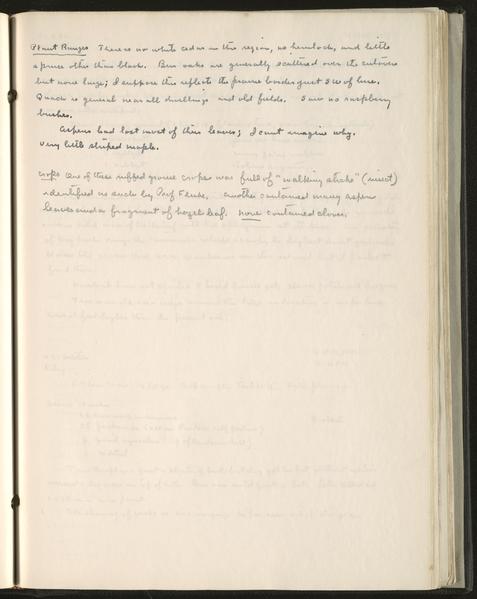 Plant Ranges There is no white cedar in this region, no hemlock, and little
spruce other than black. Bur oaks are generally scattered over the cutover
but none large; I suppose this reflects the prairie border just SW of here.
Quack is general near all dwellings and old fields. Saw no raspberry
bushes.
Aspens had lost most of their leaves; I cant imagine why.
Very little striped maple.
Crops One of these ruffed grouse crops was full of "walking sticks" (insect)
identified as such by Prof. Another contained many aspen
leaves and a fragment of hazel leaf. None contained clover.